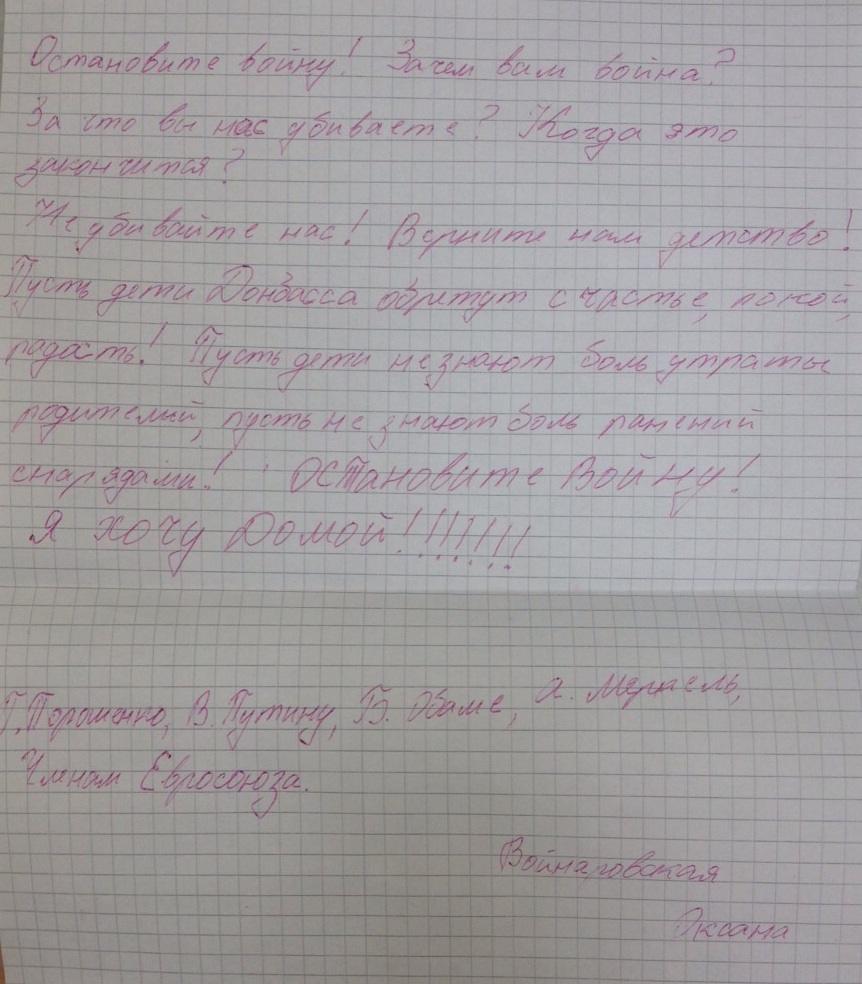 Остановите войну! Зачем вам война?
За что вы нас убиваете? Когда это
закончится?
Не убивайте нас! Верните нам детство!
Пусть дети Донбасса обретут счастье, покой,
радость! Пусть дети не знают боль утраты
родителей, пусть не знают боль ранений
снарядами! Остановите Войну!
Я хочу Домой!!!!!!!!
П. Порошенко, В. Путину, Б. Обаме, А. Меркель,
Членам Евросоюза.
Войнаровская
Оксана